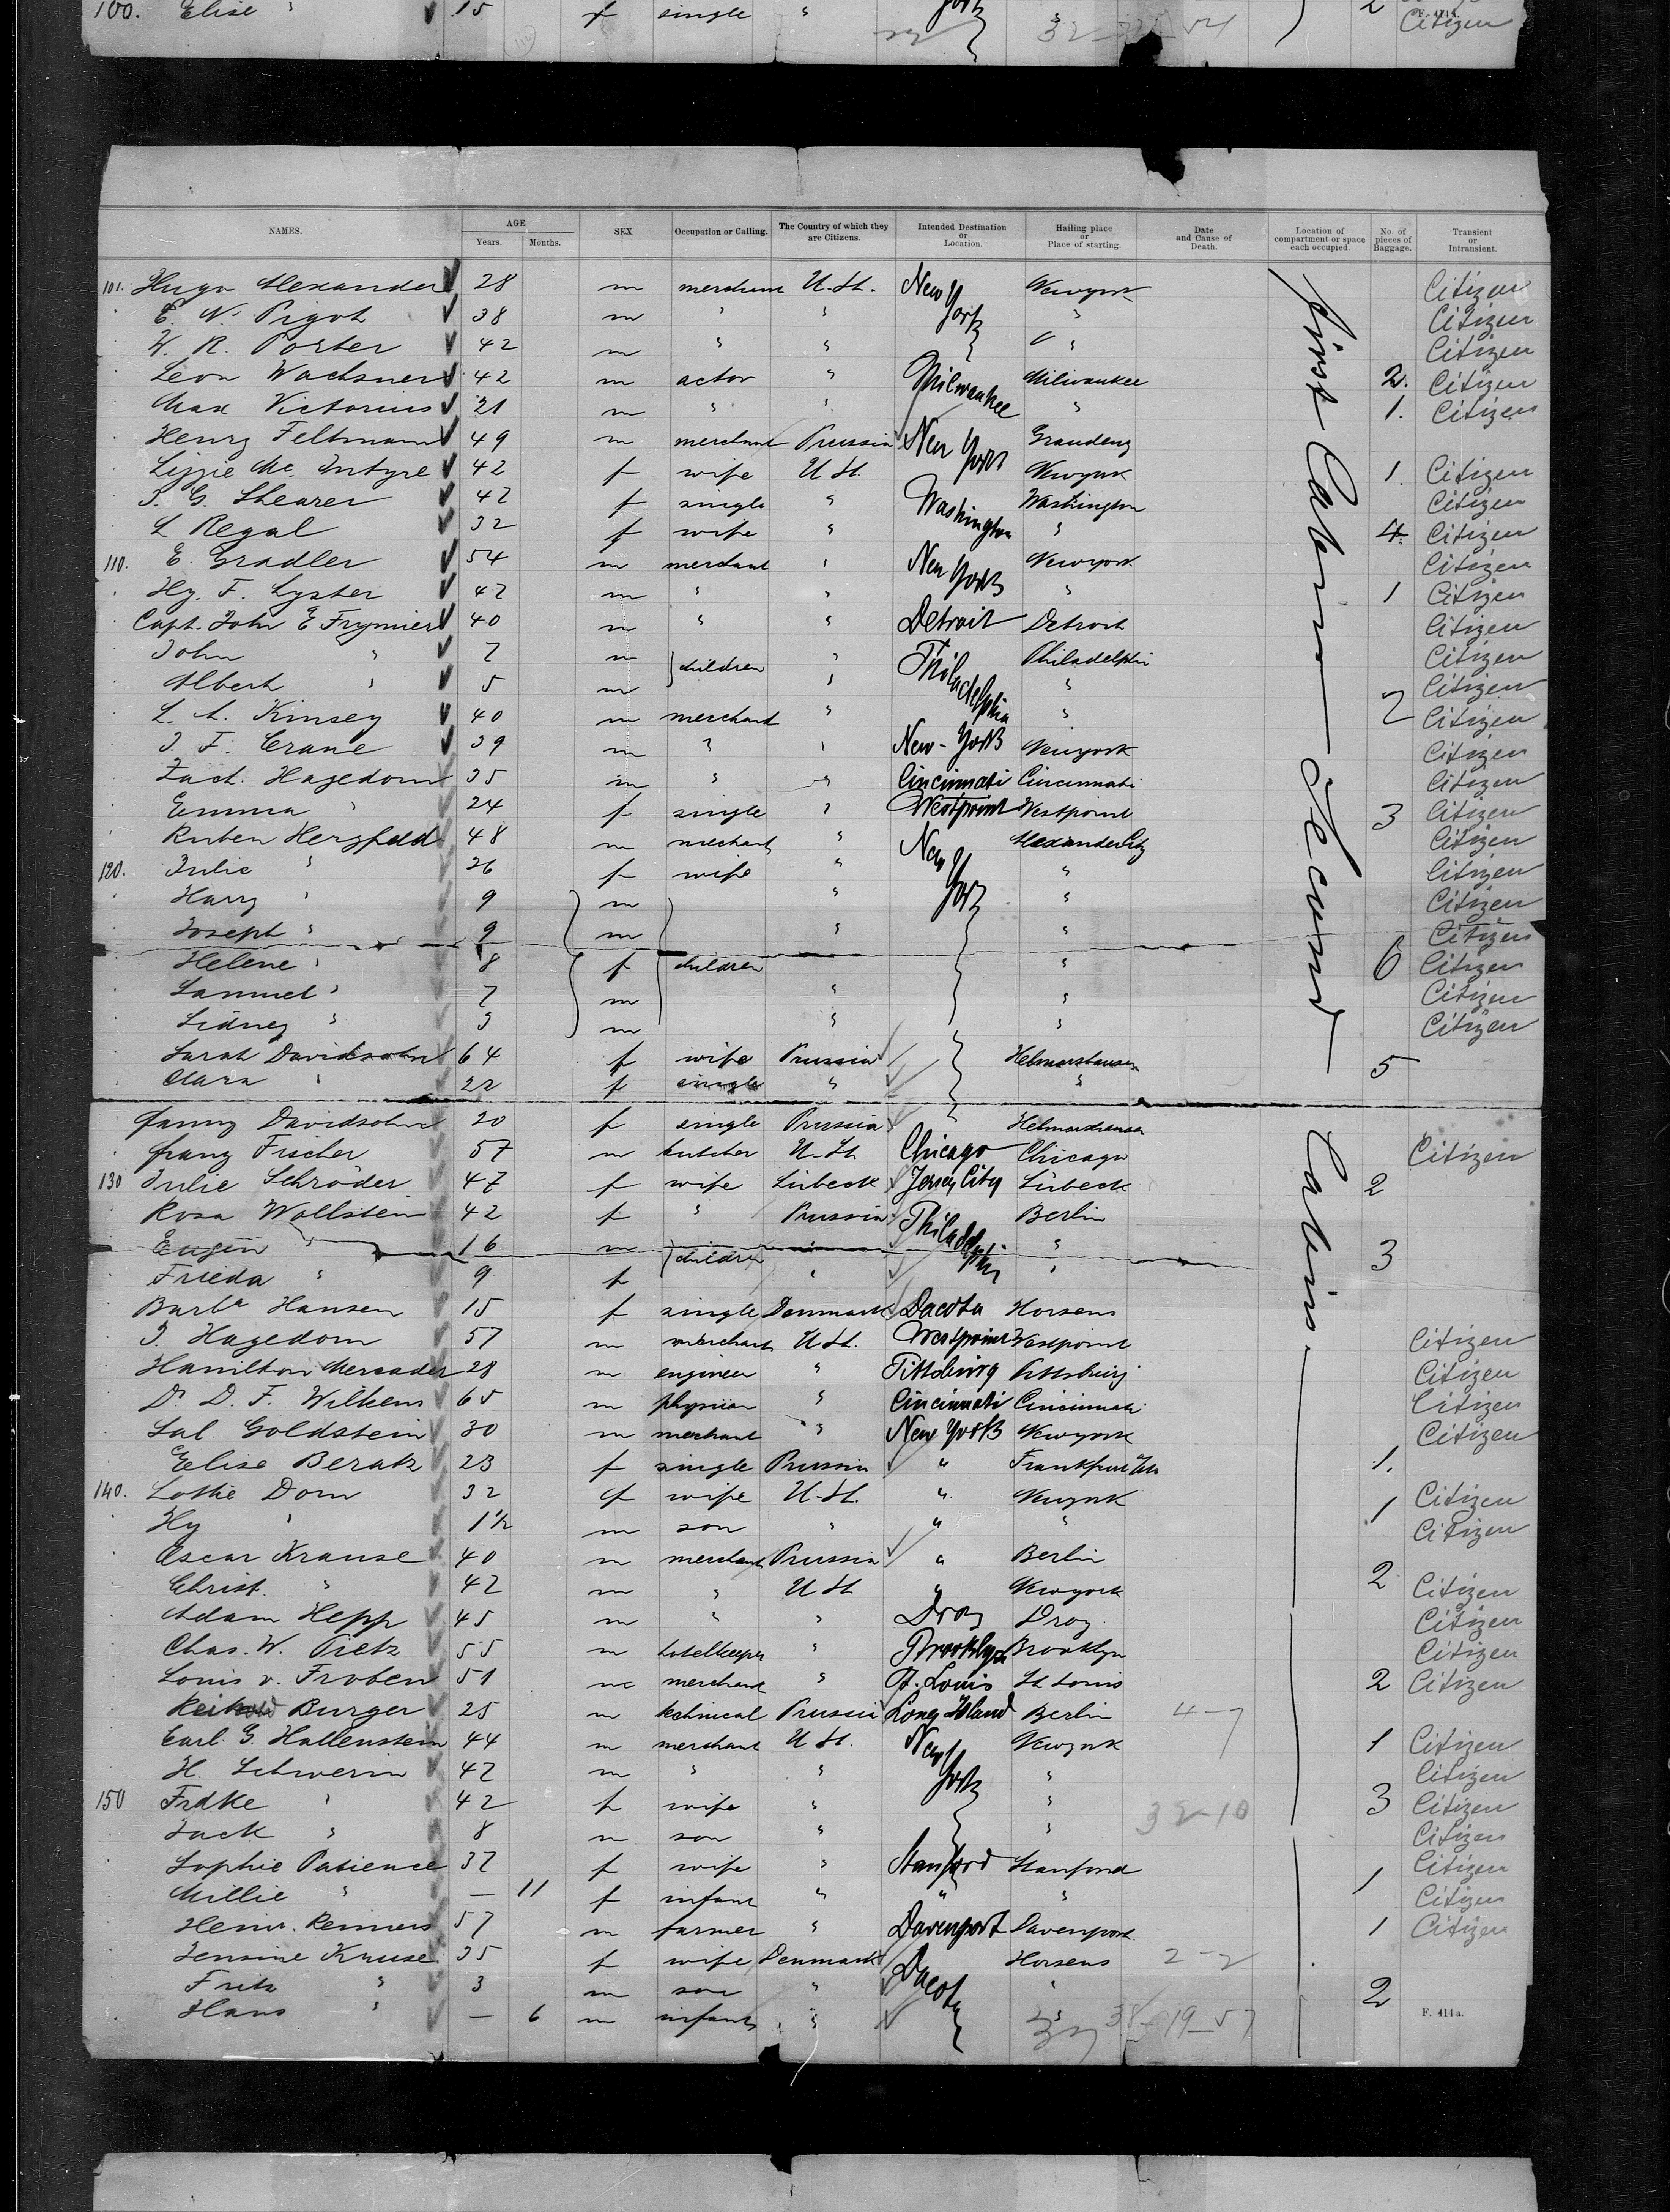 100. Elise " 15 f single " York " 2 Citizen
NAMES. AGE Years. Months. SEX Occupation or Calling. The Country of which they are Citizens. Intended Destination or Location. Hailing place or Place of starting. Date and Cause of Death. Location of compartment or space each occupied. No. of pieces of Baggage. Transient or Intransient.
First Cabin — Second — Cabin
101. Hugo Alexander 28 m merchant U. St. New York Newyork Citizen
E. N. Pigot 38 m " " " Citizen
W. R. Porter 42 m " " " Citizen
Leon Wachsner 42 m actor " Milwaukee Milwaukee 2. Citizen
Max Victorius 21 m " " " 1. Citizen
Henry Feltmann 49 m merchant Prussia New York Graudenz
Lizzie Mc. Intyre 42 f wife U. St. Newyork 1. Citizen
S. G. Shearer 42 f single " Washington Washington Citizen
L Regal 32 f wife " " 4. Citizen
110. E. Gradler 54 m merchant " New York Newyork Citizen
Hy. F. Lyster 42 m " " " 1 Citizen
Capt. John E Frymier 40 m " " Detroit Detroit Citizen
John " 7 m children " Philadelphia Philadelphia Citizen
Albert " 5 m " " Citizen
L. A. Kinsey 40 m merchant " " 2 Citizen
J. F. Crane 39 m " " New-York Newyork Citizen
Zach. Hagedorn 35 m " " Cincinnati Cincinnati Citizen
Emma " 24 f single " Westpoint Westpoint 3 Citizen
Ruben Herzfeld 48 m merchant " New York Alexander City Citizen
120. Julie " 26 f wife " " Citizen
Harry " 9 m " " Citizen
Joseph " 9 m " " Citizen
Helene " 8 f children " 6 Citizen
Samuel " 7 m " " Citizen
Sidney " 3 m " " Citizen
Sarah Davidsohn 64 f wife Prussia Helmarshausen 5
Clara " 22 f single " "
Fanny Davidsohn 20 f single Prussia Helmarshausen
Franz Fischer 57 m butcher U. St. Chicago Chicago Citizen
130 Julie Schröder 47 f wife Lübeck Jersey City Lübeck 2
Rosa Wollstein 42 f " Prussia Philadelphia Berlin
Eugen " 16 m children " 3
Frieda " 9 f " "
Barba Hansen 15 f single Denmark Dacota Horsens
J. Hagedorn 57 m merchant U. St. Westpoint Westpoint Citizen
Hamilton Mercader 28 m engineer " Pittsburg Pittsburg Citizen
Dr D. F. Wilkens 65 m physician " Cincinnati Cincinnati Citizen
Sal. Goldstein 30 m merchant " New York Newyork Citizen
Elise Beratz 23 f single Prussia " Frankfurt 1.
140. Lottie Dorn 32 f wife U. St. " Newyork 1 Citizen
Hy " 1½ m son " " " Citizen
Oscar Krause 40 m merchant Prussia " Berlin 2
Christ. " 42 m " U St. " Newyork Citizen
Adam Hepp 45 m " " Droy Droy Citizen
Chas. W. Pietz 55 m hotelkeeper " Brooklyn Brooklyn Citizen
Louis v. Froben 51 m merchant " St. Louis St Louis 2 Citizen
Reinhold Burger 25 m technical Prussia Long Island Berlin 4-7
Carl. G. Hallenstein 44 m merchant U St. New York Newyork 1 Citizen
H. Schwerin 42 m " " " Citizen
150 Frdke " 42 f wife " " 32-10 3 Citizen
Jack " 8 m son " " Citizen
Sophie Patience 37 f wife " Stanford Stanford 1 Citizen
Millie " — 11 f infant " " " Citizen
Heinr. Reimers 57 m farmer " Davenport Davenport 1 Citizen
Jensine Kruse 35 f wife Denmark Dacota Horsens 2-2
Fritz " 3 m son " " 2
Hans " — 6 m infant " "
F. 414a.